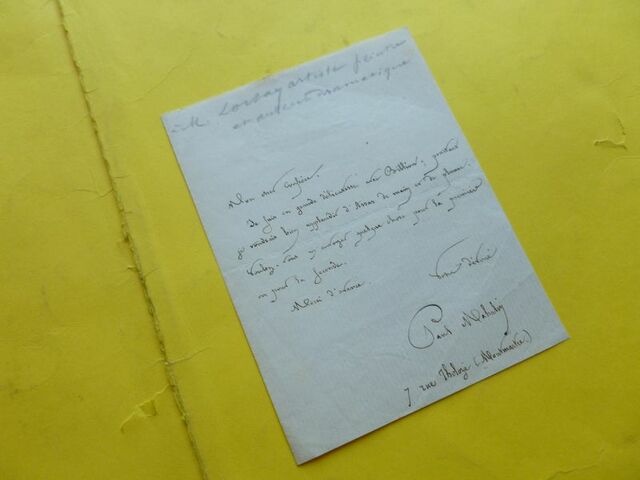 à M. Lorsay artiste peintre
et auteur dramatique
Mon cher confrère,
Je suis en grande discussion avec Billion; pourtant
je voudrais bien applaudir d'Assas de main et de plume.
Voulez-vous m'y envoyer quelque chose pour la première
ou pour la seconde.
Merci d'avance.
Votre dévoué
Paul Mahalin
7, rue Tholozé (Montmartre)